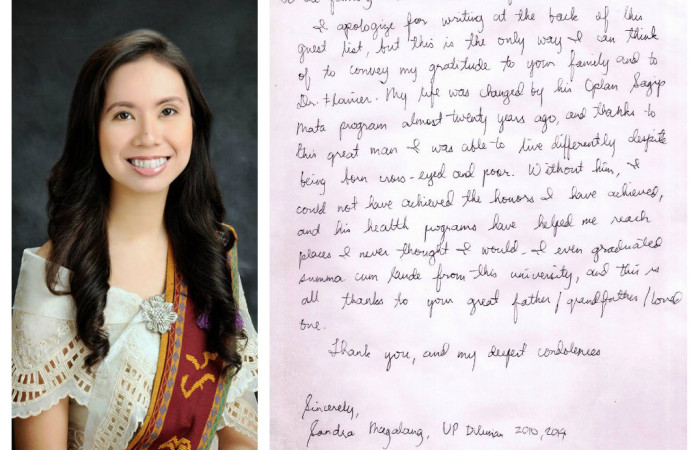 I apologize for writing at the back of this
guest list, but this is the only way I can think
of to convey my gratitude to your family and to
Dr. Flavier. My life was changed by his Oplan Sagip
Mata program almost twenty years ago, and thanks to
this great man I was able to live differently despite
being born cross-eyed and poor. Without him, I
could not have achieved the honors I have achieved,
and his health programs have helped me reach
places I never thought I would. I even graduated
summa cum laude from this university, and this is
all thanks to your great father/grandfather/loved
one.
Thank you, and my deepest condolences
Sincerely,
Sandra Magalang, UP Diliman 2010, 2014